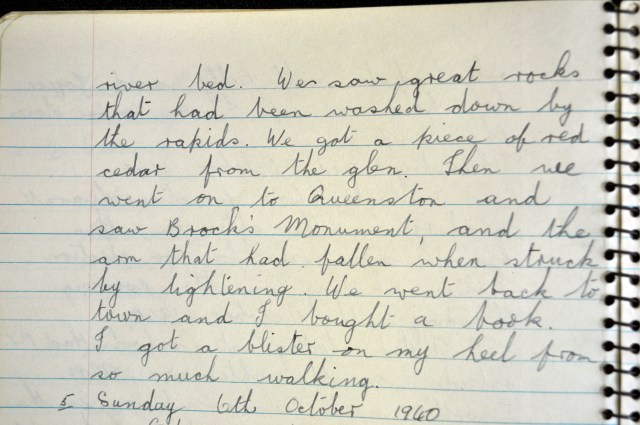 river bed. We saw great rocks
that had been washed down by
the rapids. We got a piece of red
cedar from the glen. Then we
went on to Queenston and
saw Brock's Monument, and the
arm that had fallen when struck
by lightening. We went back to
town and I bought a book.
I got a blister on my heel from
so much walking.
5 Sunday 6th October 1960